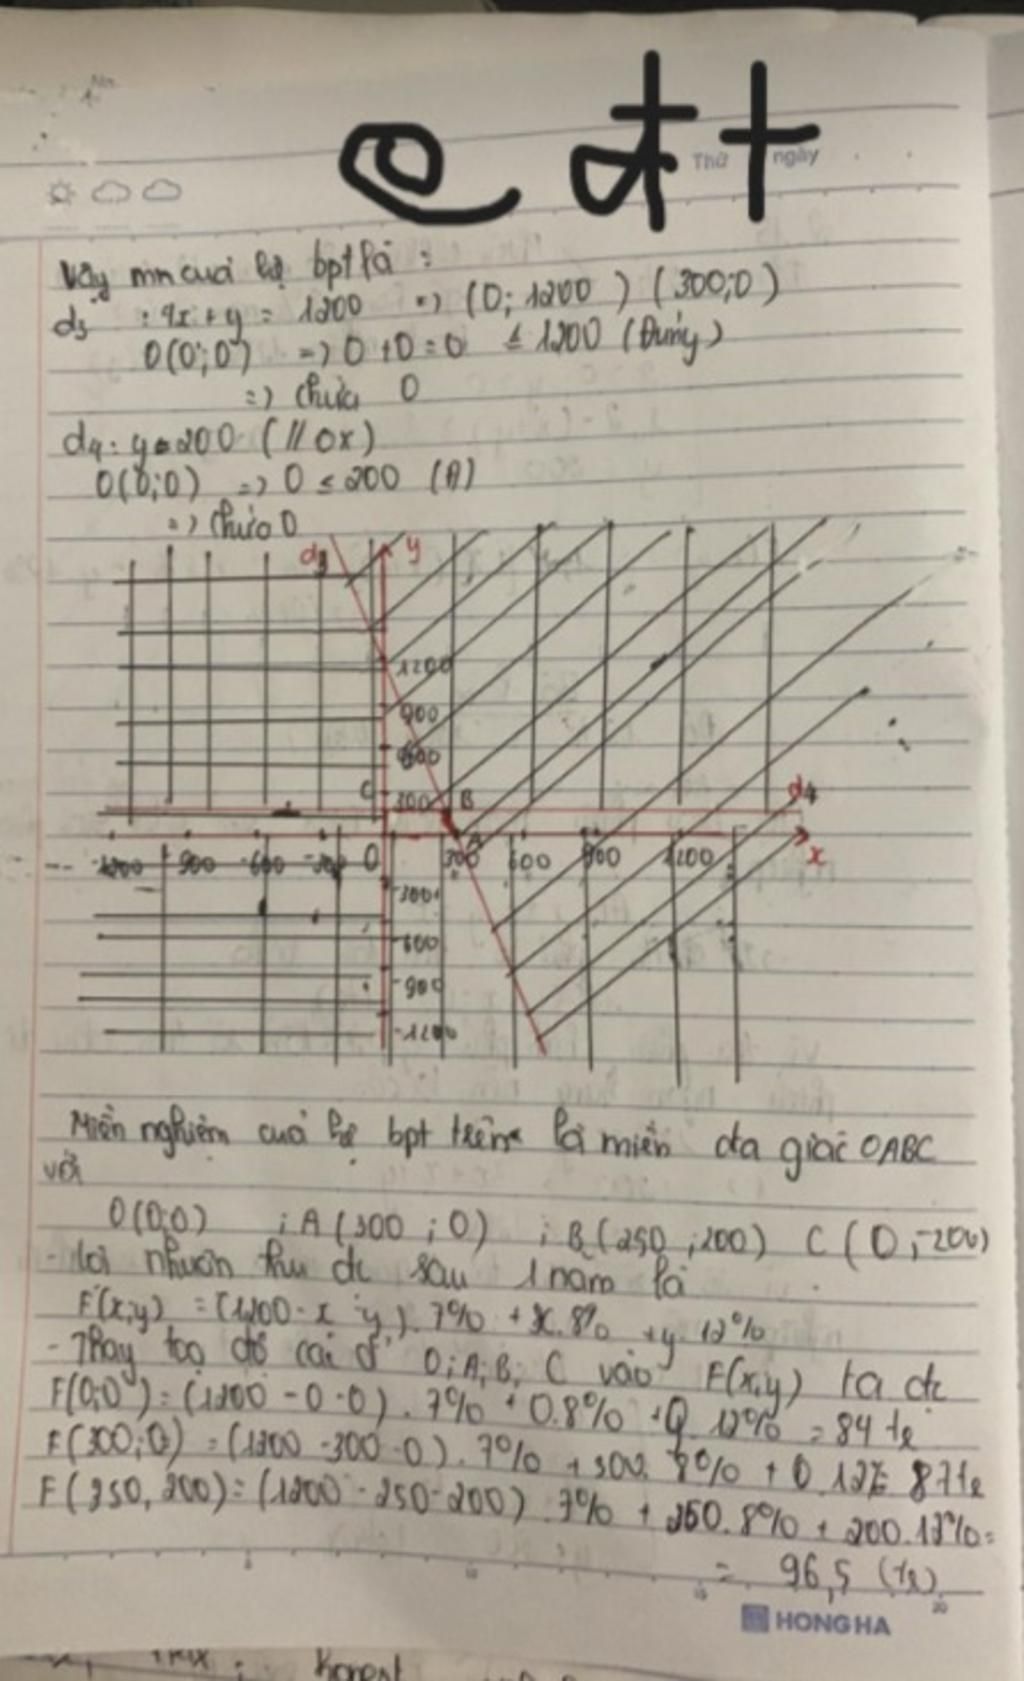 e đt
Thứ ngày
Vậy mn của hệ bpt là :
d3 : 4x + y = 1200 => (0; 1200) (300;0)
O(0;0) => 0 + 0 = 0 ≤ 1200 (Đúng)
=> chứa O
d4: y = 200 (// ox)
O(0;0) => 0 ≤ 200 (Đ)
=> chứa O
d3 y
1200
900
600
C 300 B
d4
A
-1200 -900 -600 -300 O 300 600 900 1200 x
-300
-600
-900
-1200
Miền nghiệm của hệ bpt trên là miền đa giác OABC
với
O(0;0) ; A(300 ; 0) ; B(250 ; 200) C (0; 200)
- lợi nhuận thu đc sau 1 năm là
F(x;y) = (1200 - x - y). 7% + x. 8% + y 12%
- Thay toạ độ cái đ' O; A; B; C vào F(x;y) ta đc
F(0;0) = (1200 - 0 - 0) . 7% + 0.8% + 0. 12% = 84 tr
F(300;0) = (1200 - 300 - 0). 7% + 300. 8% + 0. 12% = 87 tr
F(250, 200) = (1200 - 250 - 200) . 7% + 250. 8% + 200. 12% =
= 96,5 (tr)
HONG HA